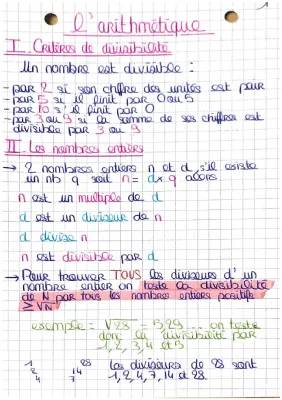 1
L'arithmétique
I. Critères de divisibilité
Un nombre est divisible :
- par 2 si son chiffre des unités est pair
- par 5 si il finit par 0 ou 5
- par 10 s'il finit par 0
- par 3 ou 9 si la somme de ses chiffres est
divisible par 3 ou 9
II. Les nombres entiers
→ 2 nombres entiers n et d, s'il existe
un nb q soit n = d × q alors
n est un multiple de d
d est un diviseur de n
d divise n
n est divisible par d
→ Pour trouver TOUS les diviseurs d'un
nombre entier on teste la divisibilité
de N par tous les nombres entiers positifs
≥ √N
exemple = √28 = 5,29... on teste
donc la divisibilité par
1, 2, 3, 4 et 5
1 28 Les diviseurs de 28 sont
2 14 1, 2, 4, 7, 14 et 28.
4 7